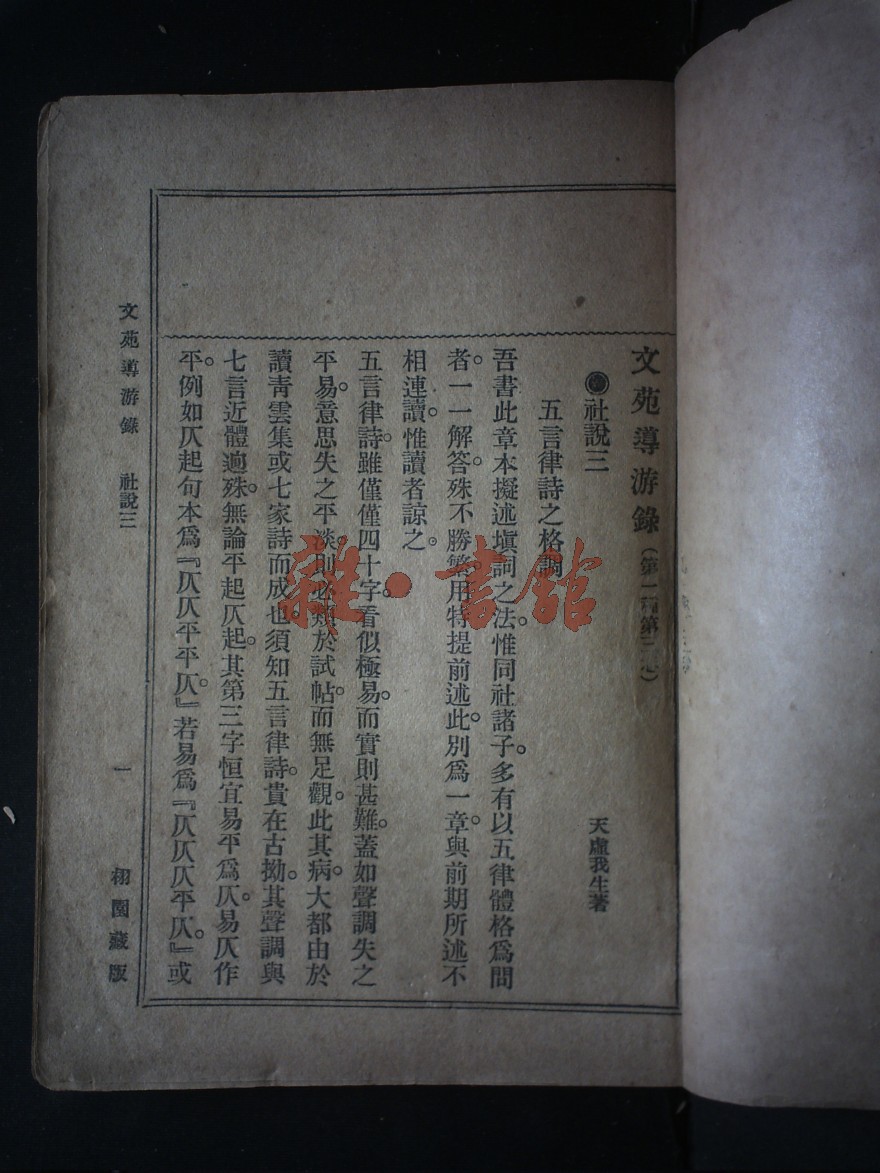 文苑導游錄(第一種第三
社說三
天虛我生著
五言律詩之格調
吾書此章本擬述塡詞之法。惟同社諸子。多有以五律體格爲問
者。一一解答。殊不勝繁。用特提前述此。別爲一章。與前期所述不
相連讀。惟讀者諒之。
五言律詩。雖僅僅四十字。看似極易。而實則甚難。蓋如聲調失之
平易。意思失之平淡。則必類於試帖。而無足觀。此其病。大都由於
讀靑雲集或七家詩而成也。須知五言律詩。貴在古拗。其聲調與
七言近體逈殊。無論平起仄起。其第三字恒宜易平爲仄。易仄作
平。例如仄起句本爲『仄仄平平仄。』若易爲『仄仄仄平仄。』或
文苑導游錄 社說三 一 栩園藏版
雜·書館